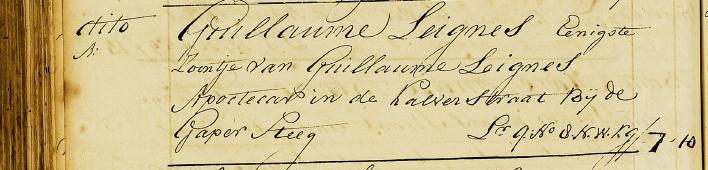 dito Guillaume Leignes Eenigste
A: Zoontje van Guillaume Leignes
Apoctecar in de Kalverstraat Bij de
Gaper Steeg Lr 9 No 8 K.W.K.g 7-10